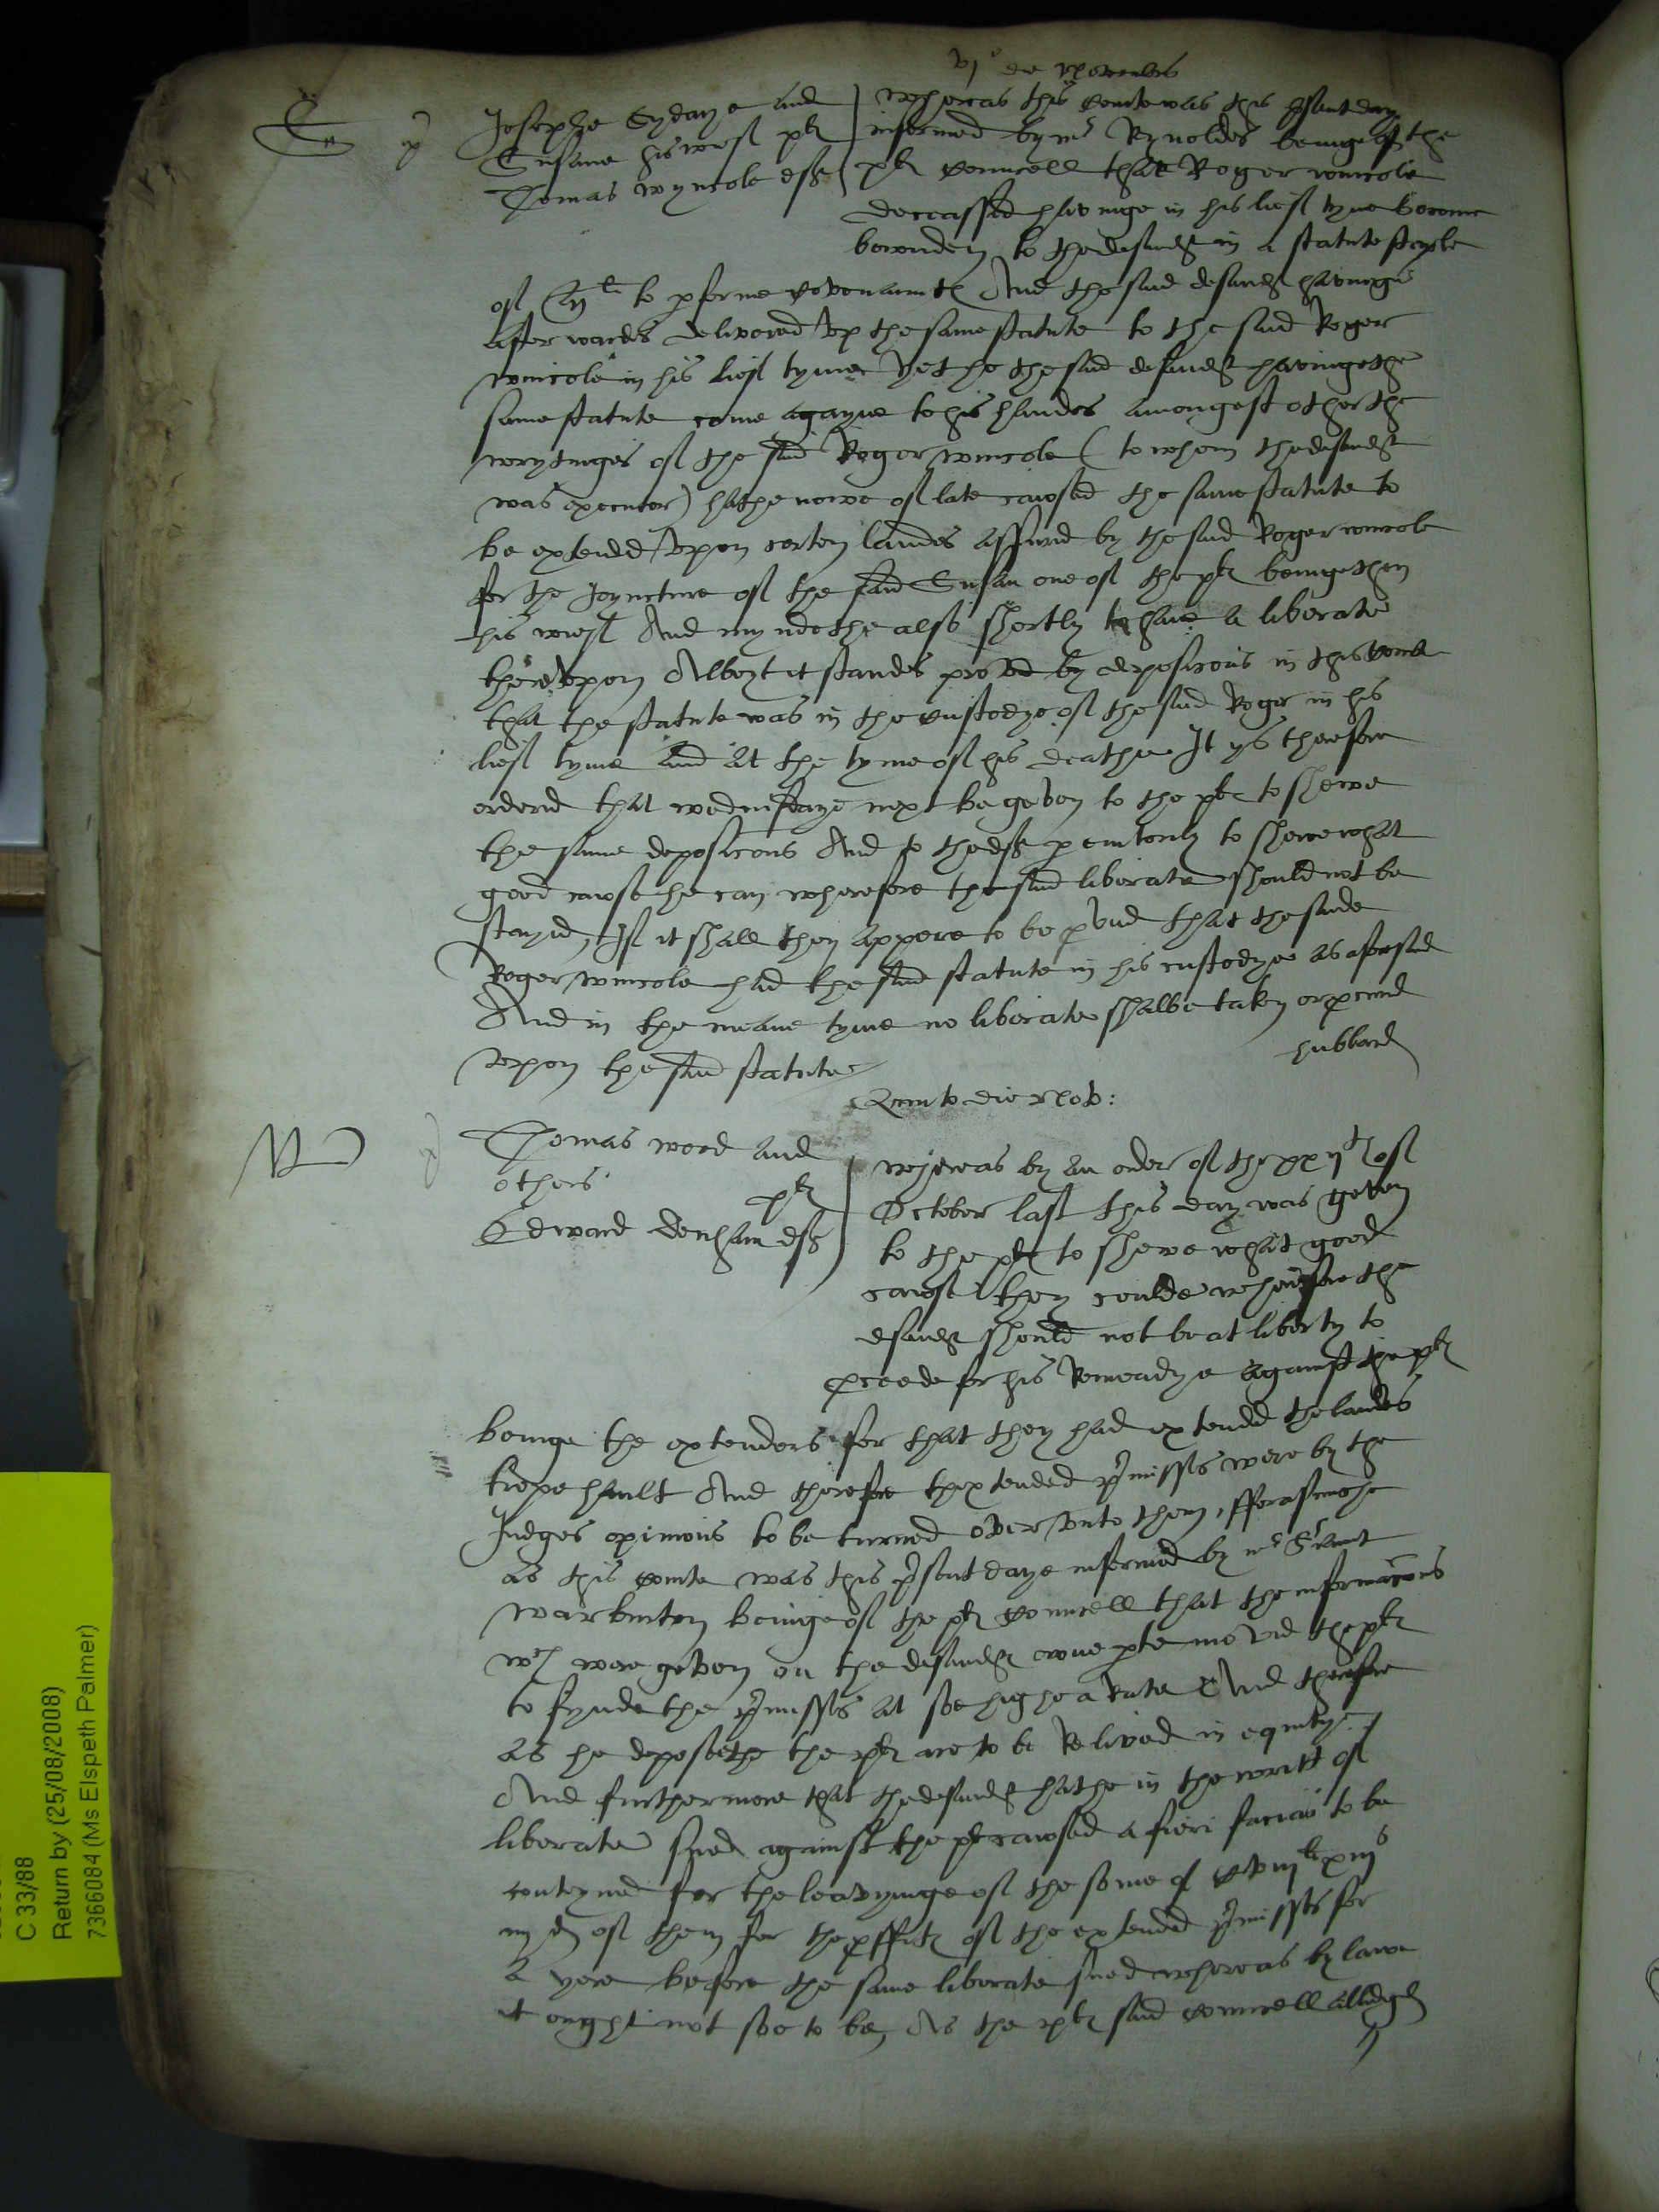 vj die Novembris
Josephe Sydaye and
Susane his wief pl
Thomas Wyncole def
whereas this Courte was this psent day
informed by mr Reynoldes beinge of the
pl Councell that Roger wincole
deceassed havinge in his lief tyme become
bounden to the defendt in a statute staple
of li to pforme Covenauntes And the said defendt havinge
afterwardes delivered up the same statute to the said Roger
wincole in his lief tyme Yet he the said defendt havinge the
same statute come agayne to his handes amongest other the
wrytinges of the said Roger wincole (to whom the defendt
was executor) hathe nowe of late caused the same statute to
be extended upon certen landes assured by the said Roger wincole
for the Joyncture of the said Susan one of the pl beinge then
his wief And myndethe also shortly to have a liberate
thereupon Albeyt it standes proved by deposicons in this Courte
that the statute was in the Custodye of the said Roger in his
lief tyme and at the tyme of his deathe It ys therefore
ordered that wednisdaye next be geven to the pl to shewe
the same deposicons And to the def pemtorily to shewe what
good cause he can wherefore the said liberate should not be
stayed, If it shall then appere to be pved that the saide
Roger wincole had the said statute in his custodye as aforesaid
And in the meane tyme no liberate shalbe taken or pcured
upon the said statute
hubbard
Quinto die Nov:
Thomas wood and
others pl
Edward Denham def
whereas by an order of the xxijth of
October last this day was geven
to the pl to shewe what good
cause they coulde wherefore the
defendt should not be at liberty to
pceede for his Remeadye against the pl
beinge the extendors for that they had extended the landes
to hault And therefore thextended pmisses were by the
Judges opinions to be turned over unto them, fforasmoche
as this Courte was this psent daye informed by mr Sriaunt
warburton beinge of the pl Councell that the informacons
wch were geven on the defendt owne pte moved the pl
to fynde the pmisses at soe highe a Rate And therefore
as he deposethe the pl are to be Relived in equitye
And furthermore that the defendt hathe in the writt of
liberate sued against the pl caused a fieri facias to be
conteyned for the leavyinge of the some of li xiijs
iiijd of them for the pffitts of the extended pmisses for
a yere before the same liberate sued whereas by lawe
it ought not soe to be, As the pl said Councell alledged
C 33/88
Return by (25/08/2008)
7366084 (Ms Elspeth Palmer)